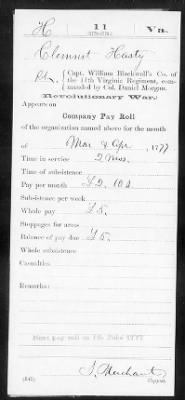 H 11 Va.
Clemnst Hasty
Pt., Capt. William Blackwell's Co. of
the 11th Virginia Regiment, com-
manded by Col. Daniel Morgan.
Revolutionary War.
Appears on
Company Pay Roll
of the organization named above for the month
of Mar & Apr, 1777.
Time in service 2 mos.
Time of subsistence
Pay per month £2. 10s.
Subsistence per week
Whole pay £5.
Stoppages for arms
Balance of pay due £5.
Whole subsistence
Casualties
Remarks:
J. Merchant
Copyist.